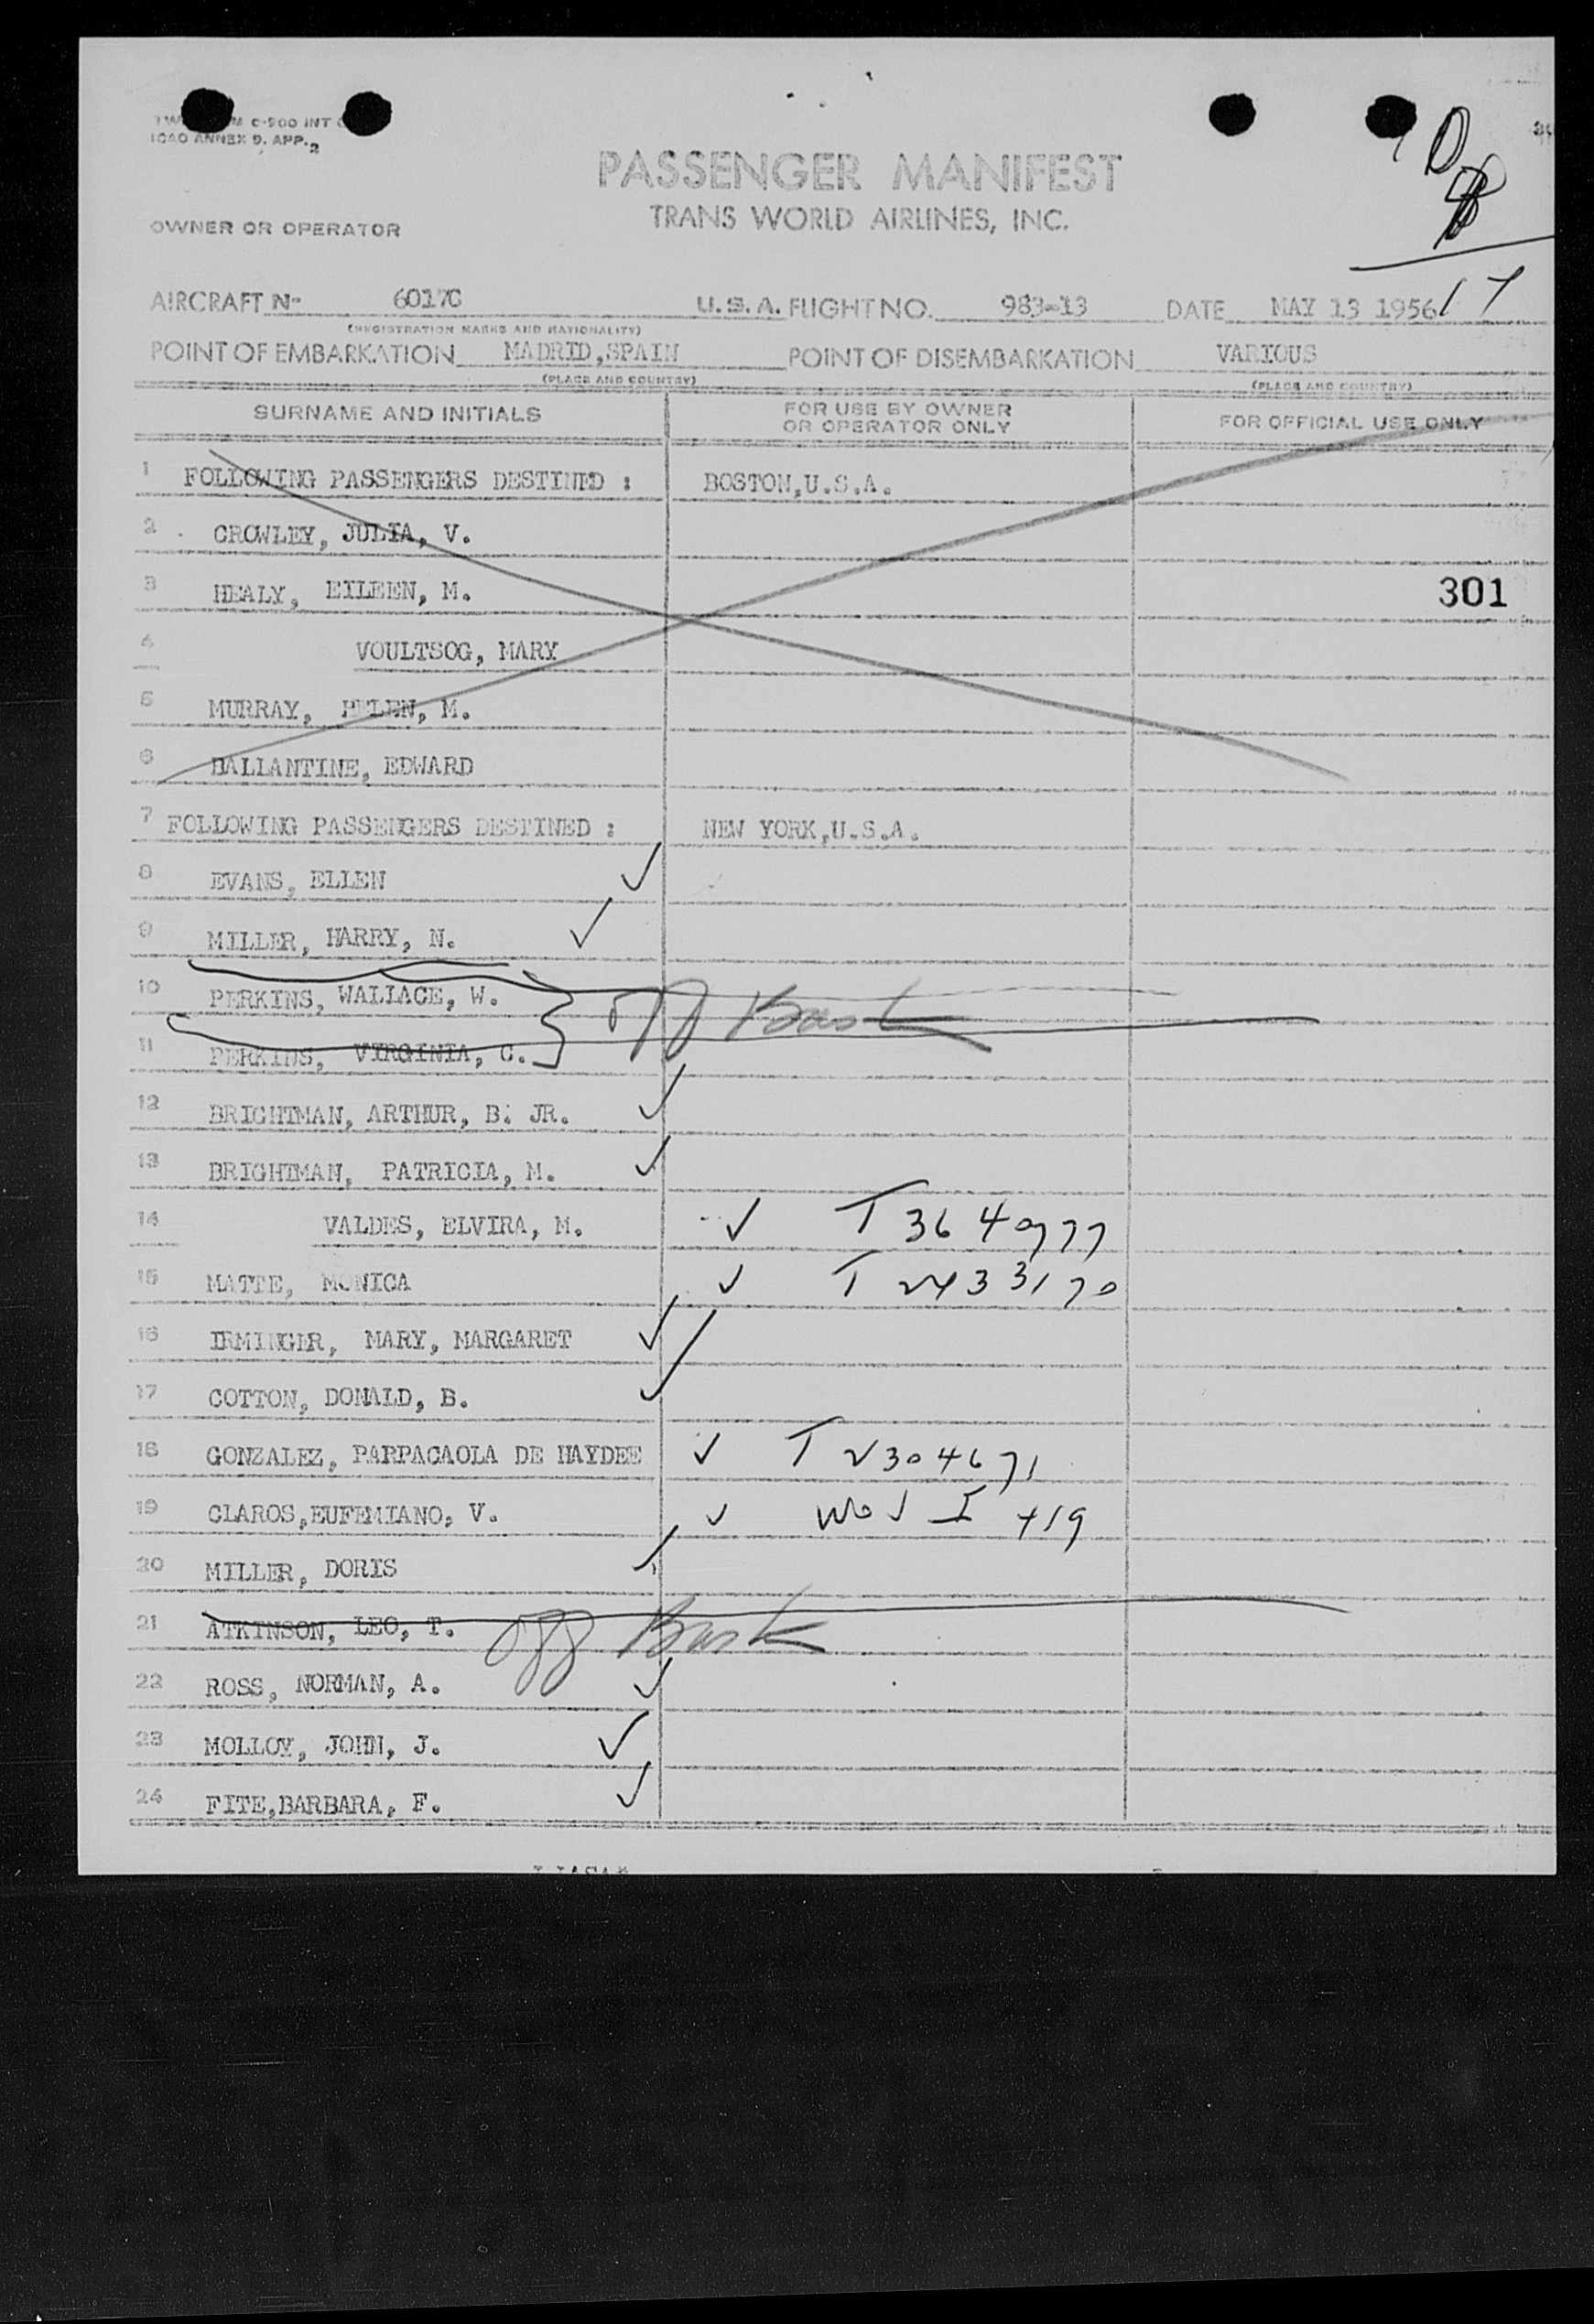 C-900 INT
ICAO ANNEX 9. APP. 2
PASSENGER MANIFEST
TRANS WORLD AIRLINES, INC.
OWNER OR OPERATOR
AIRCRAFT No 6017C U.S.A. FLIGHT NO. 983-13 DATE MAY 13 1956
(REGISTRATION MARKS AND NATIONALITY)
POINT OF EMBARKATION MADRID,SPAIN POINT OF DISEMBARKATION VARIOUS
(PLACE AND COUNTRY) (PLACE AND COUNTRY)
SURNAME AND INITIALS FOR USE BY OWNER OR OPERATOR ONLY FOR OFFICIAL USE ONLY
1 FOLLOWING PASSENGERS DESTINED : BOSTON,U.S.A.
2 CROWLEY, JULIA, V.
3 HEALY, EILEEN, M. 301
4 VOULTSOG, MARY
5 MURRAY, HELEN, M.
6 BALLANTINE, EDWARD
7 FOLLOWING PASSENGERS DESTINED : NEW YORK,U.S.A.
8 EVANS, ELLEN ✓
9 MILLER, HARRY, N. ✓
10 PERKINS, WALLACE, W. off
11 PERKINS, VIRGINIA, C.
12 BRIGHTMAN, ARTHUR, B. JR. ✓
13 BRIGHTMAN, PATRICIA, M. ✓
14 VALDES, ELVIRA, M. ✓ T
15 MATTE, MONICA ✓ T
16 IRMINGER, MARY, MARGARET ✓
17 COTTON, DONALD, B. ✓
18 GONZALEZ, PARPACAOLA DE HAYDEE ✓ T 2304671
19 CLAROS,EUFEMIANO, V. ✓
20 MILLER, DORIS ✓
21 ATKINSON, LEO, T. off
22 ROSS, NORMAN, A. ✓
23 MOLLOY, JOHN, J. ✓
24 FITE,BARBARA, F. ✓